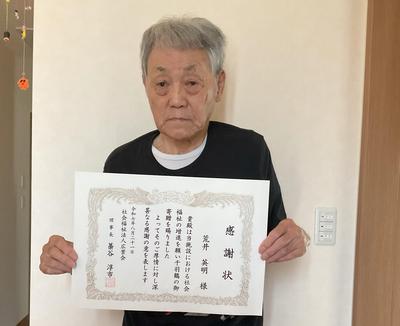 感謝状
荒井 英明 様
貴殿は当施設における社会
福祉の増進を願い千羽鶴の御
寄贈を賜りました
よってそのご厚情に対し深
甚なる感謝の意を表します
令和七年八月二十一日
社会福祉法人広宣会
理事長 番谷 淳市